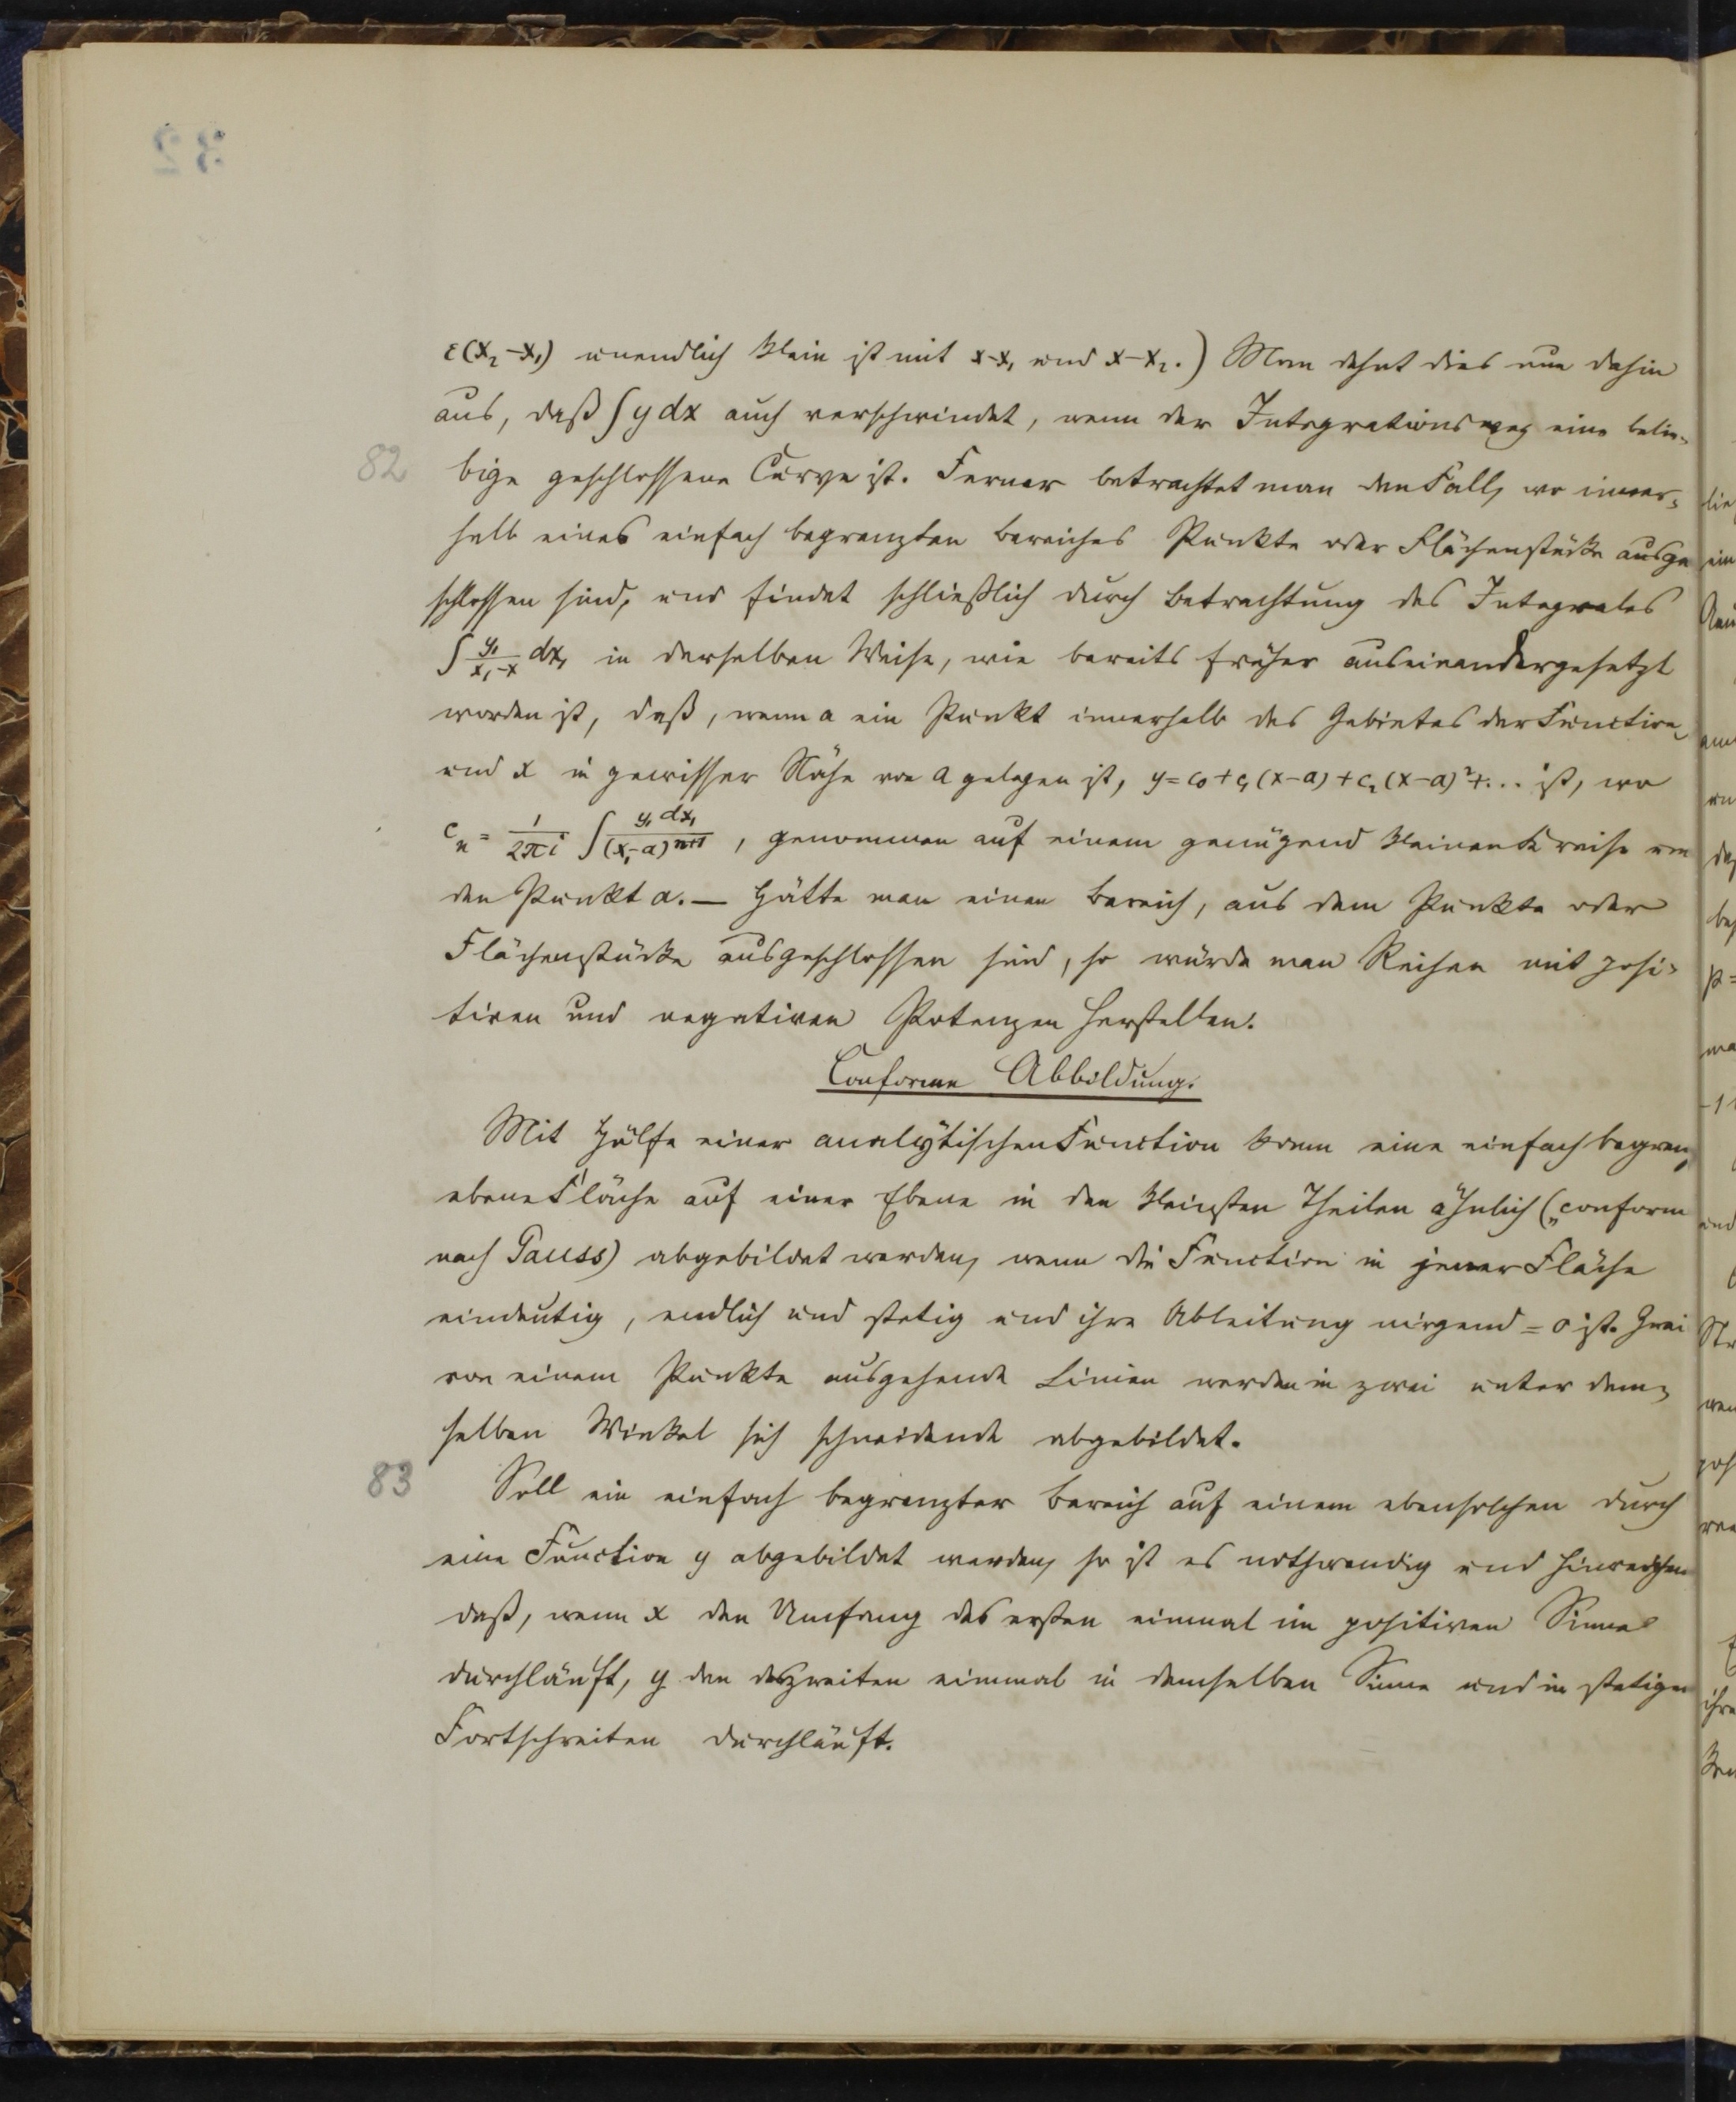 ε(x₂-x₁) unendlich klein ist mit x-x₁ und x-x₂.) Man dehnt dies nun dahin
aus, daß ∫y dx auch verschwindet, wenn der Integrationsweg eine belie-
82 bige geschlossene Curve ist. Ferner betrachtet man den Fall, wo inner-
halb eines einfach begrenzten Bereiches Punkte oder Flächenstücke ausge
schlossen sind, und findet schließlich durch Betrachtung des Integrales
∫ y₁/(x₁-x) dx₁ in derselben Weise, wie bereits früher auseinandergesetzt
worden ist, daß, wenn a ein Punkt innerhalb des Gebietes der Function,
und x in gewisser Nähe von a gelegen ist, y = c₀ + c₁(x-a) + c₂(x-a)² + ... ist, wo
cₙ = 1/(2πi) ∫ y₁dx₁/(x₁-a)ⁿ⁺¹, genommen auf einem genügend kleinen Kreise um
den Punkt a. — Hätte man einen Bereich, aus dem Punkte oder
Flächenstücke ausgeschlossen sind, so würde man Reihen mit posi-
tiven und negativen Potenzen herstellen.
Conforme Abbildung.
Mit Hülfe einer analytischen Function kann eine einfach begren
ebene Fläche auf einer Ebene in den kleinsten Theilen ähnlich („conform
nach Gauss) abgebildet werden, wenn die Function in jener Fläche
eindeutig, endlich und stetig und ihre Ableitung nirgend = 0 ist. Zwei
von einem Punkte ausgehende Linien werden in zwei unter dem-
selben Winkel sich schneidende abgebildet.
83 Soll ein einfach begrenzter Bereich auf einem ebensolchen durch
eine Function y abgebildet werden, so ist es nothwendig und hinreichen
daß, wenn x den Umfang des ersten einmal im positiven Sinne
durchläuft, y den des zweiten einmal in demselben Sinne und in stetigem
Fortschreiten durchläuft.